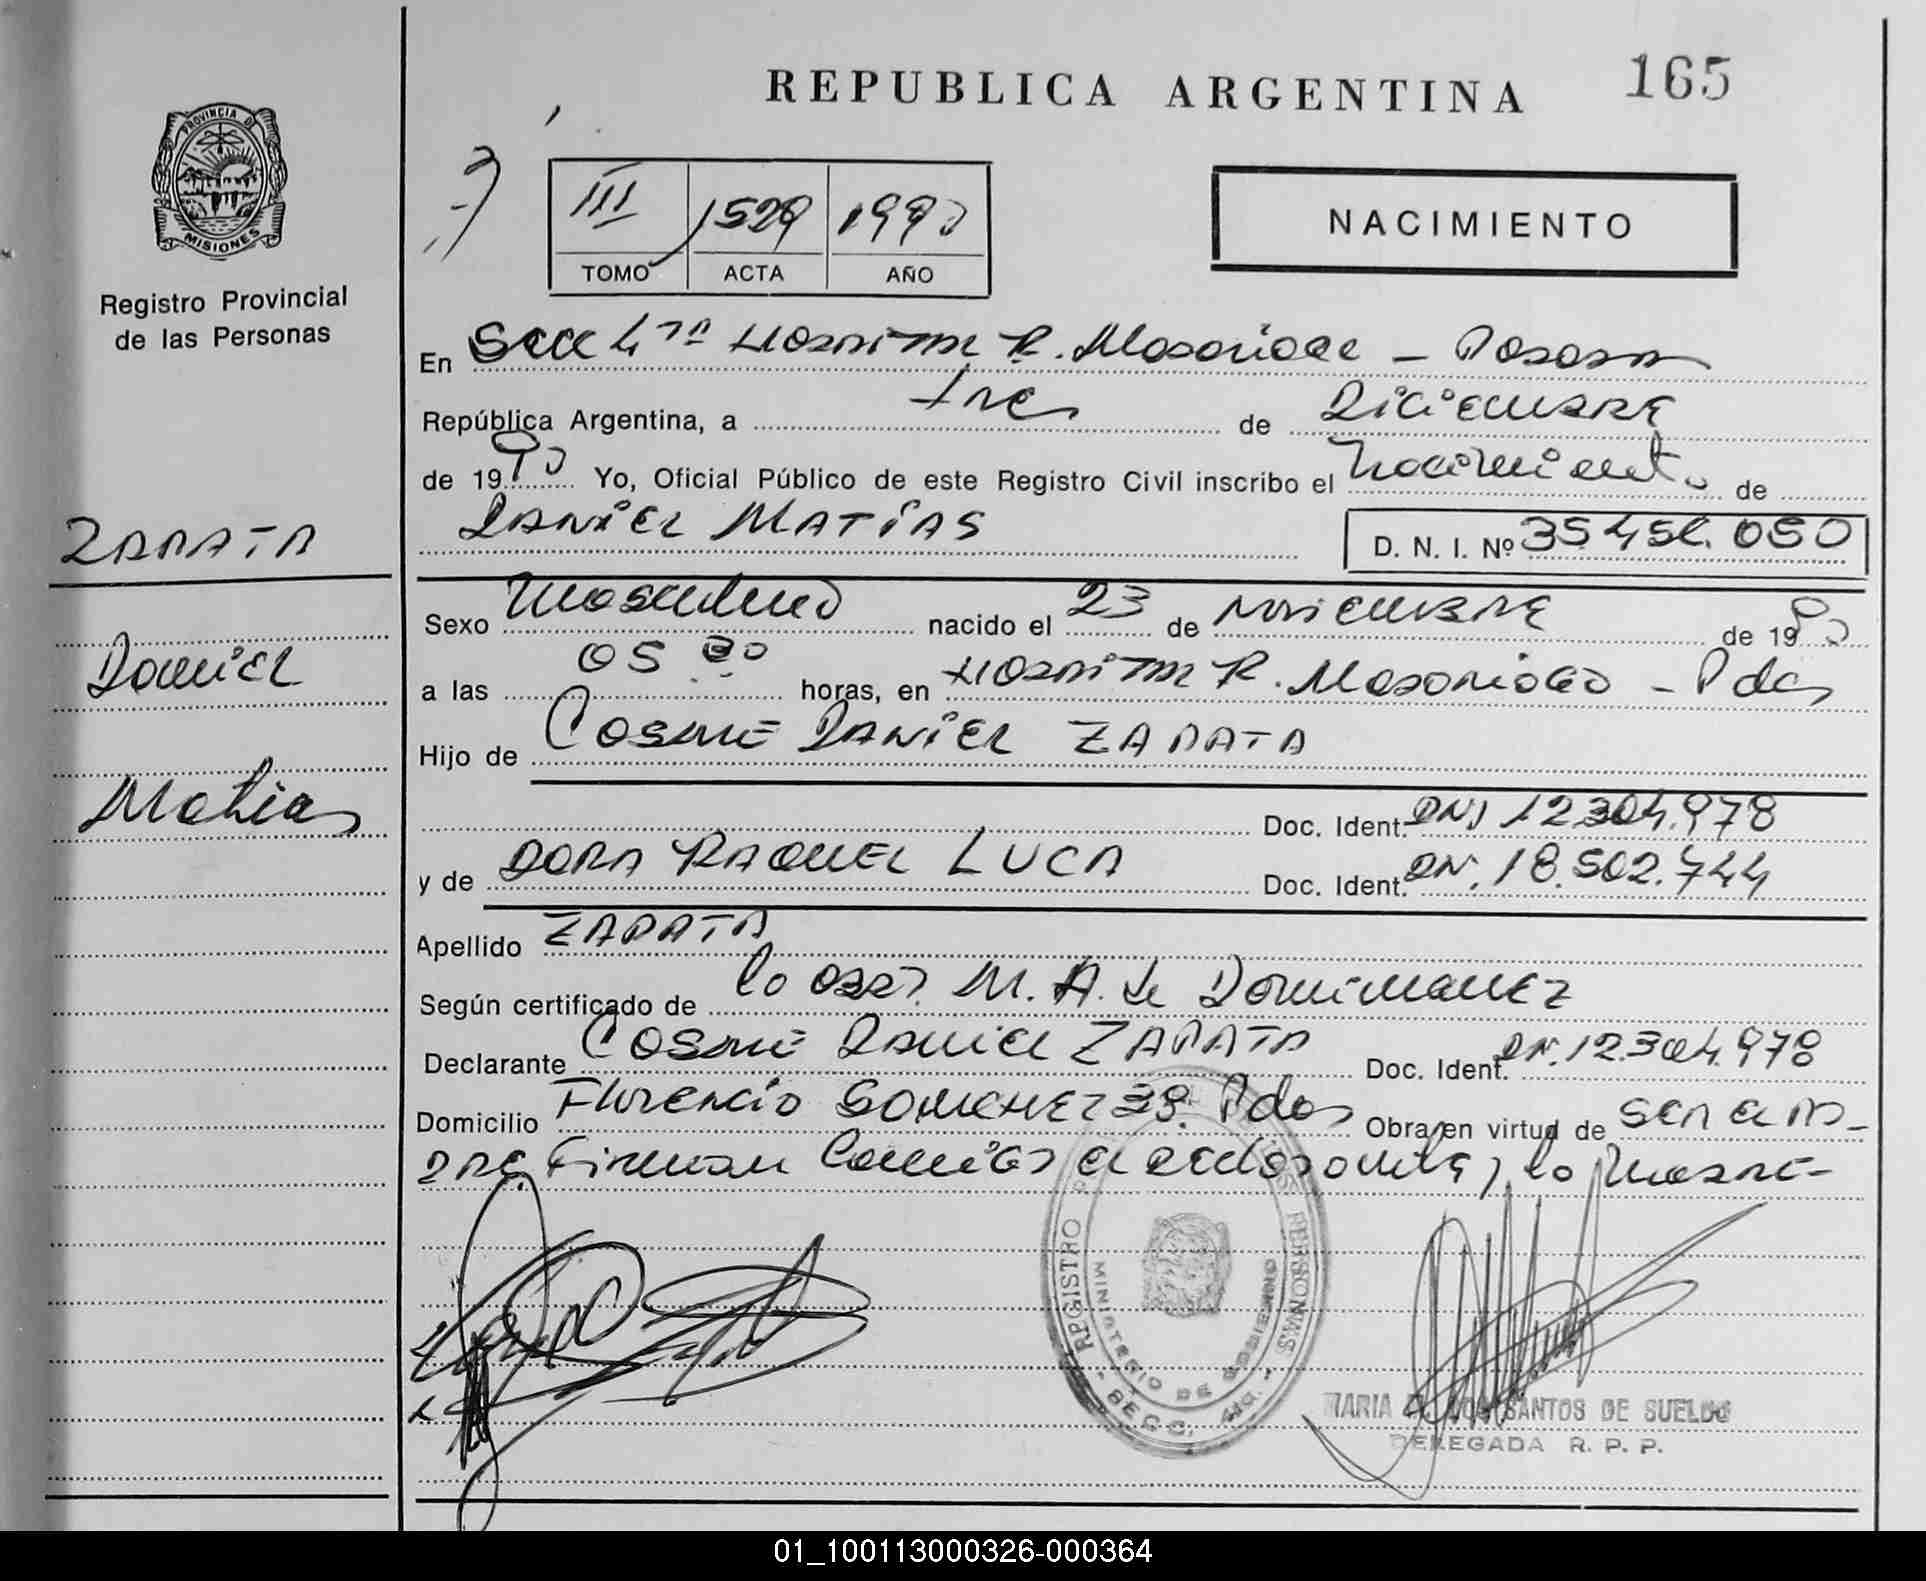 REPUBLICA ARGENTINA 165
PROVINCIA DE
MISIONES
Registro Provincial
de las Personas
III 1529 1990
TOMO ACTA AÑO
NACIMIENTO
En Secc 4ta Hospital R. Madariaga - Posadas
República Argentina, a tres de Diciembre
de 1990 Yo, Oficial Público de este Registro Civil inscribo el Nacimiento de
DANIEL MATÍAS D. N. I. Nº 35.456.050
ZAPATA
Daniel
Matías
Sexo Masculino nacido el 23 de Noviembre de 1990
a las 05 horas, en Hospital R. Madariaga - Pdas
Hijo de COSME DANIEL ZAPATA
Doc. Ident. DNI 12.304.978
y de DORA RAQUEL LUCA Doc. Ident. DN. 18.502.744
Apellido ZAPATA
Según certificado de la obst. M. A. de
Declarante COSME DANIEL ZAPATA Doc. Ident. DN. 12.304.978
Domicilio Florencio Sanchez 38. Pdas Obra en virtud de ser el pa-
dre. Firman el declarante y la madre-
REGISTRO PERSONAS
MINISTERIO DE GOBIERNO
SECC.
MARIA SANTOS DE SUELDO
DELEGADA R. P. P.
01_100113000326-000364